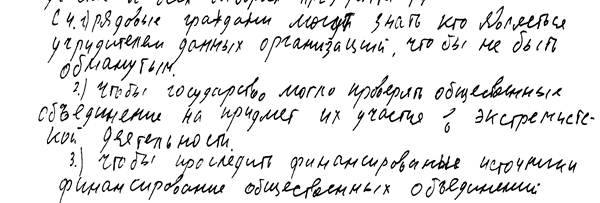 С4. 1) рядовые граждани могут знать кто является
учридителем данных организаций, что бы не быть
обманутым.
2.) чтобы государство могло проверять общественные
объединение на придмет их участие в экстремистс-
кой деятельности.
3.) чтобы проследить финансированые источники
финансирование общественных объединений